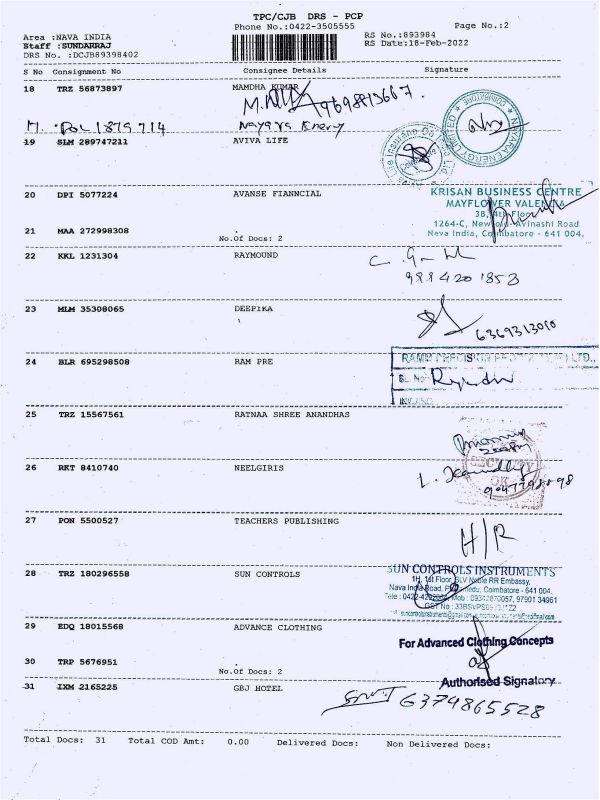 TPC/CJB DRS - PCP
Phone No.:0422-3505555 Page No.:2
Area :NAVA INDIA RS No.:893984
Staff :SUNDARRAJ RS Date:18-Feb-2022
DRS No. :DCJB89398402
S No Consignment No Consignee Details Signature
18 TRZ 56873897 MAMDHA KUMAR
9698813667.
M. POL 1879714 Nayara Energy
NAYARA ENERGY LIMITED
COIMBATORE
19 SLM 289747211 AVIVA LIFE
20 DPI 5077224 AVANSE FIANNCIAL
KRISAN BUSINESS CENTRE
MAYFLOWER VALENCIA
3B, 4th Floor
1264-C, New/Old-Avinashi Road
Nava India, Coimbatore - 641 004.
21 MAA 272998308
No.Of Docs: 2
22 KKL 1231304 RAYMOUND
9884201853
23 MLM 35308065 DEEPIKA
6369313090
24 BLR 695298508 RAM PRE
25 TRZ 15567561 RATNAA SHREE ANANDHAS
26 RKT 8410740 NEELGIRIS
SECURITY
OK
27 PON 5500527 TEACHERS PUBLISHING
H/R
28 TRZ 180296558 SUN CONTROLS
SUN CONTROLS INSTRUMENTS
1H, 1st Floor, SLV Noble RR Embassy,
Coimbatore - 641 004.
97901 34961
29 EDQ 18015568 ADVANCE CLOTHING
For Advanced Clothing Concepts
30 TRP 5676951
No.Of Docs: 2
Authorised Signatory
31 IXM 2165225 GBJ HOTEL
6374865528
Total Docs: 31 Total COD Amt: 0.00 Delivered Docs: Non Delivered Docs: